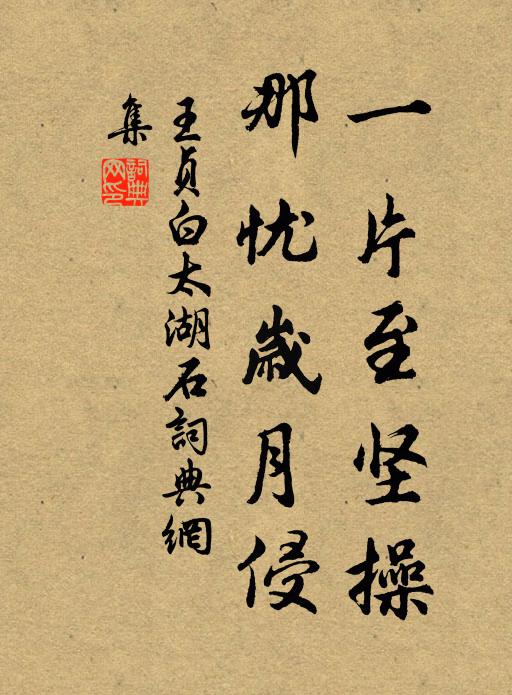 一片至坚操
那忧岁月侵
王贞白太湖石詞典網
集
詞典
网印